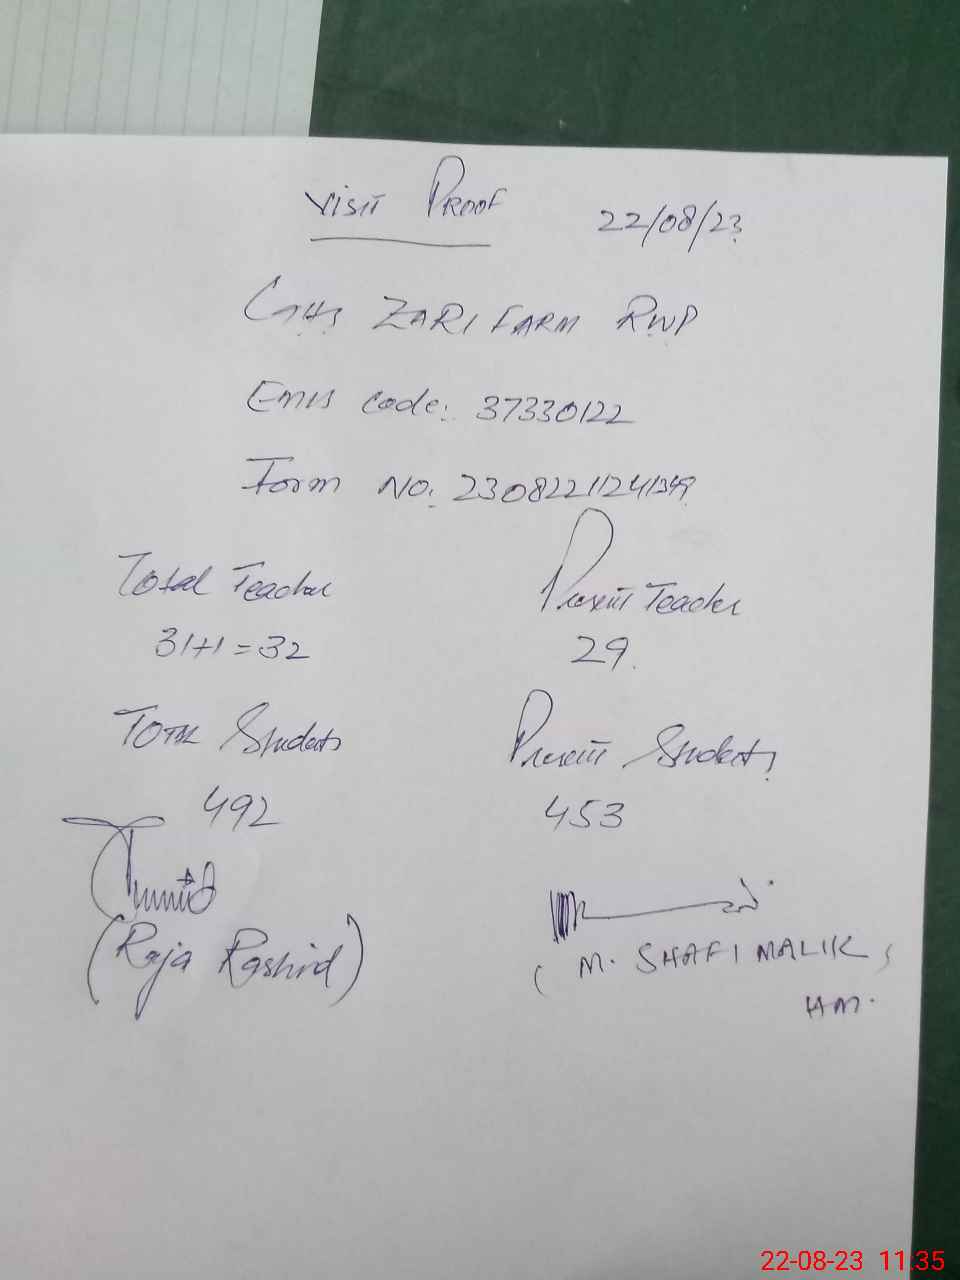 Visit Proof 22/08/23
GHS ZARI FARM RWP
Emis code: 37330122
Form No: 23082211241349
Total Teacher Present Teacher
31+1=32 29.
Total Students Present Students
492 453
(Raja Rashid) (M. SHAFI MALIK)
HM.
22-08-23 11:35